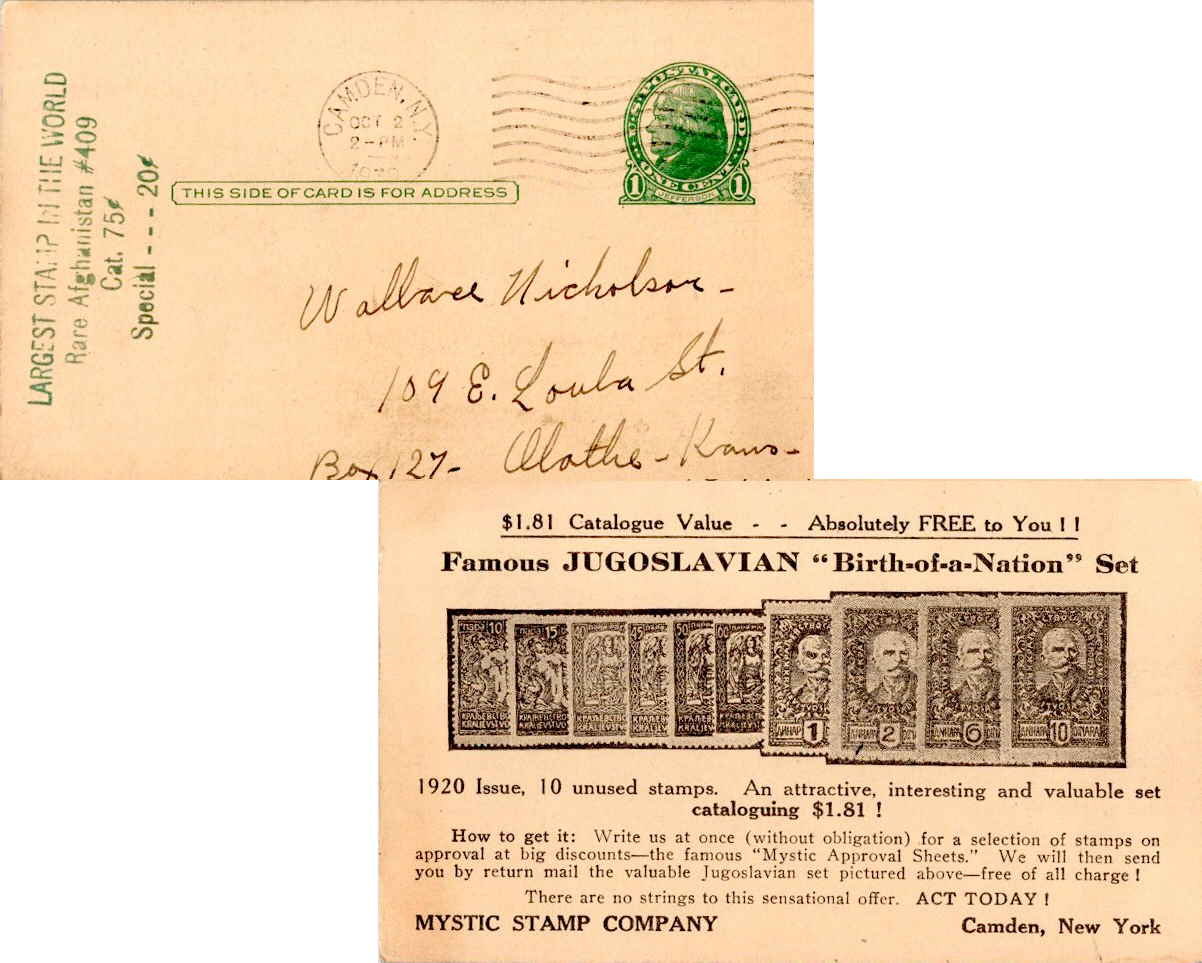 LARGEST STAMP IN THE WORLD
Rare Afghanistan #409
Cat. 75¢
Special - - - 20¢
CAMDEN, N.Y.
OCT 2
2-PM
THIS SIDE OF CARD IS FOR ADDRESS
U.S. POSTAL CARD
ONE CENT
1 JEFFERSON 1
Wallace Nicholson -
109 E. Loula St.
Box 127 - Olathe - Kans -
$1.81 Catalogue Value - - Absolutely FREE to You ! !
Famous JUGOSLAVIAN “Birth-of-a-Nation” Set
10 15 45 50
КРАЉЕВСТВО КРАЉЕВСТВО КРАЉЕВСТВО
KRALJEVSTVO KRALJEVSTVO
1 2 6 10
ДИНАРА DINARA
1920 Issue, 10 unused stamps. An attractive, interesting and valuable set
cataloguing $1.81 !
How to get it: Write us at once (without obligation) for a selection of stamps on
approval at big discounts—the famous “Mystic Approval Sheets.” We will then send
you by return mail the valuable Jugoslavian set pictured above—free of all charge !
There are no strings to this sensational offer. ACT TODAY !
MYSTIC STAMP COMPANY Camden, New York